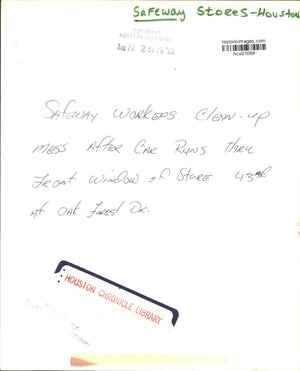 Safeway Stores-Houston
COPYRIGHT
HOUSTON CHRONICLE
historicimages.com
hcx01084
Safeway Workers Clean-up
mess After Car Runs Thru
Front Window of Store 43rd
at Oak Forest Dr.
HOUSTON CHRONICLE LIBRARY